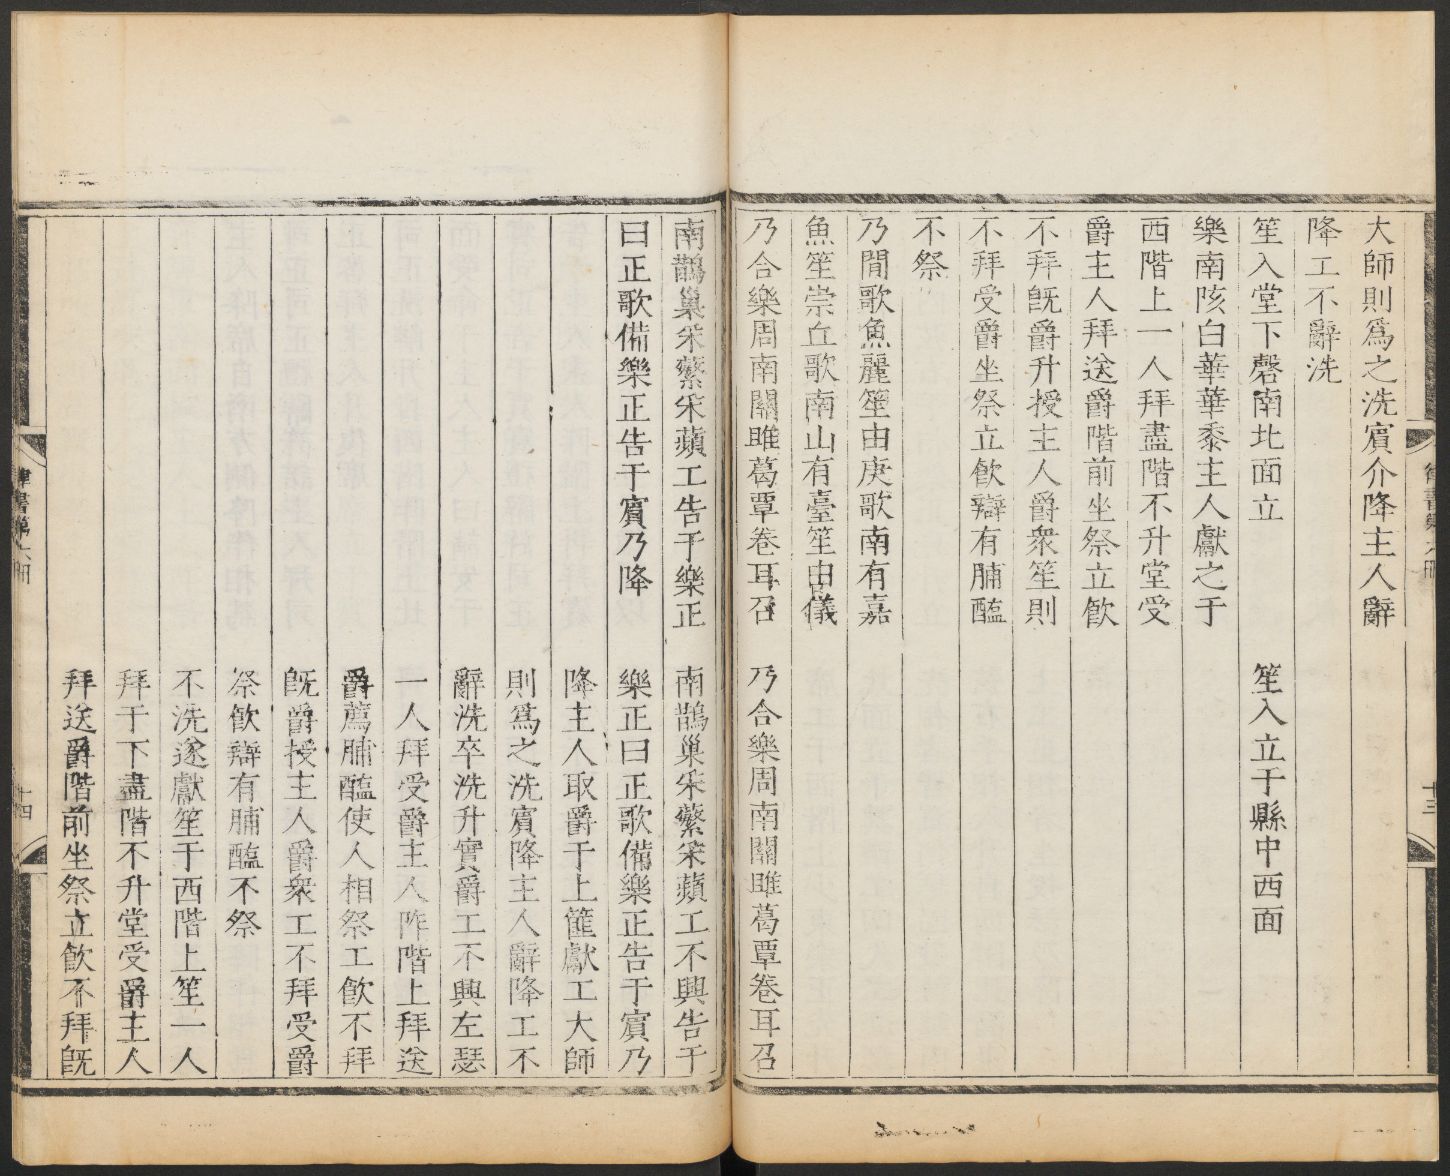 大師則爲之洗賓介降主人辭
降工不辭洗
笙入堂下磬南北面立
笙入立于縣中西面
樂南陔白華華黍主人獻之于
西階上一人拜盡階不升堂受
爵主人拜送爵階前坐祭立飲
不拜旣爵升授主人爵衆笙則
不拜受爵坐祭立飲辯有脯醢
不祭
乃閒歌魚麗笙由庚歌南有嘉
魚笙崇丘歌南山有臺笙由儀
乃合樂周南關雎葛覃卷耳召
乃合樂周南關雎葛覃卷耳召
律書第六冊
十三
南鵲巢采蘩采蘋工告于樂正
南鵲巢采蘩采蘋工不興告于
曰正歌備樂正告于賓乃降
樂正曰正歌備樂正告于賓乃
降主人取爵于上篚獻工大師
則爲之洗賓降主人辭降工不
辭洗卒洗升實爵工不興左瑟
一人拜受爵主人阼階上拜送
爵薦脯醢使人相祭工飲不拜
旣爵授主人爵衆工不拜受爵
祭飲辯有脯醢不祭
不洗遂獻笙于西階上笙一人
拜于下盡階不升堂受爵主人
拜送爵階前坐祭立飲不拜旣
律書第六冊
十四